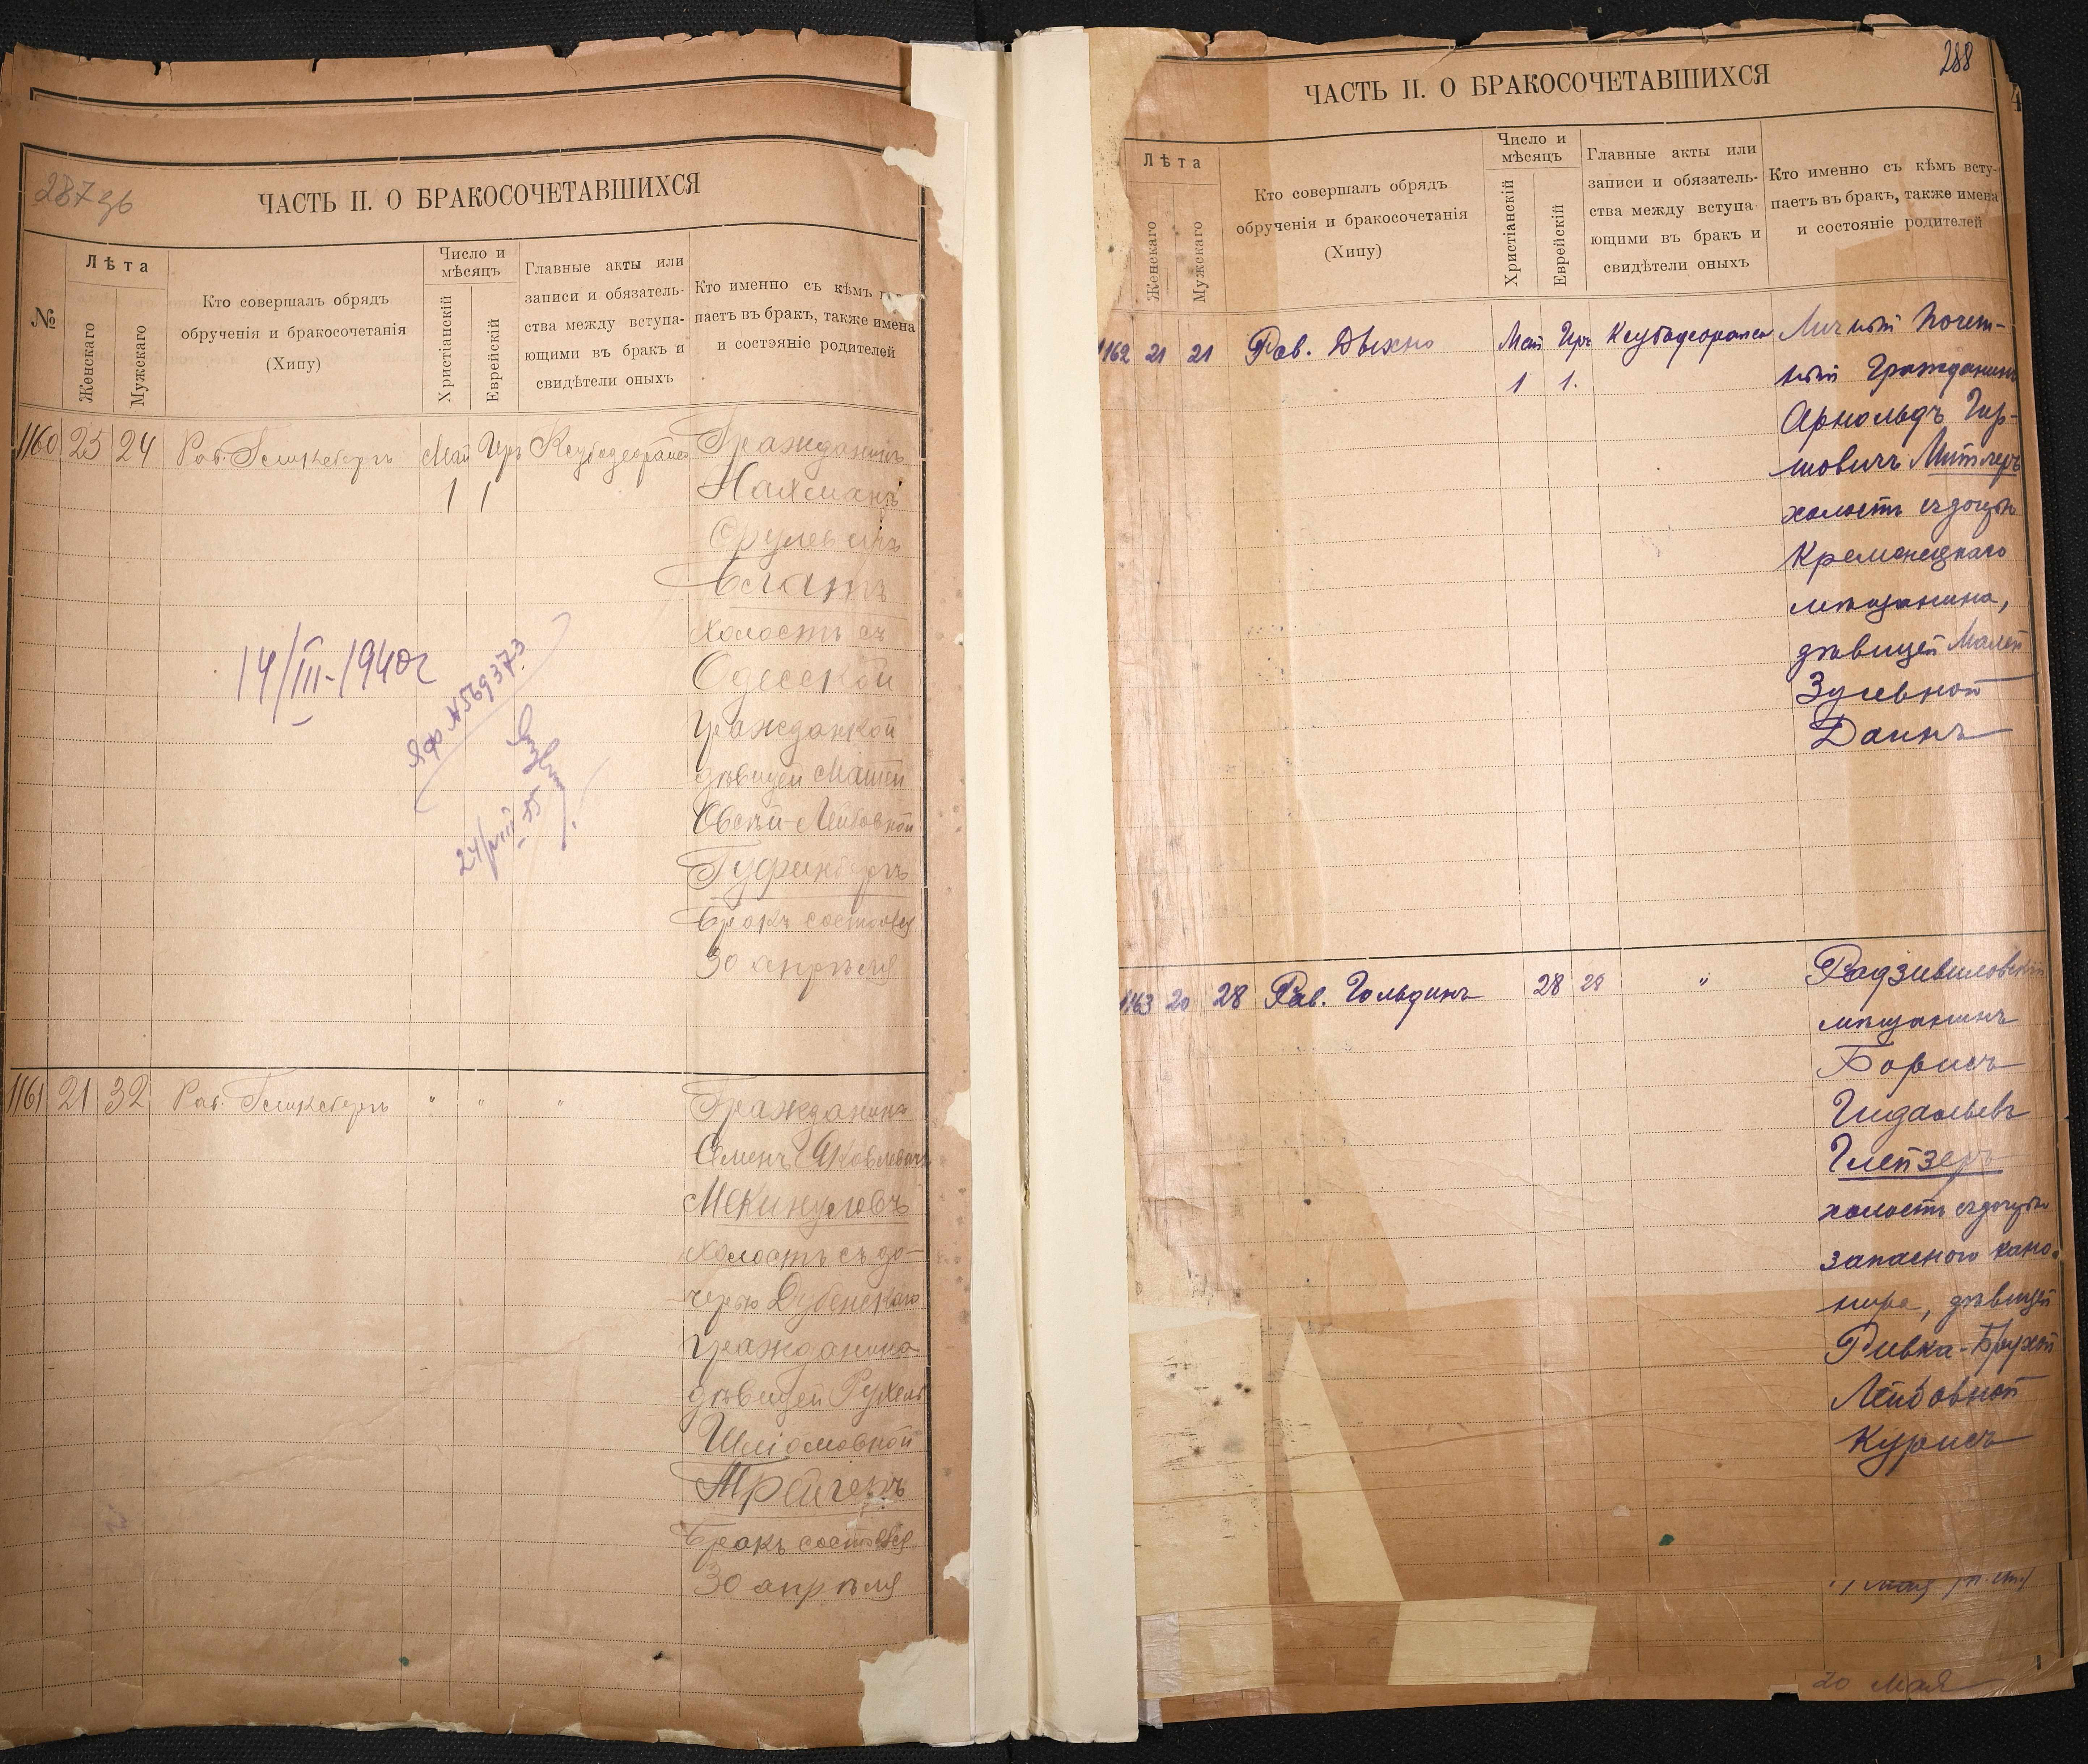 287 зб
ЧАСТЬ II. О БРАКОСОЧЕТАВШИХСЯ
№
Лѣта
Женскаго
Мужскаго
Кто совершалъ обрядъ
обрученія и бракосочетанія
(Хипу)
Число и
мѣсяцъ
Христіанскій
Еврейскій
Главные акты или
записи и обязатель-
ства между вступа-
ющими въ бракъ и
свидѣтели оныхъ
Кто именно съ кѣмъ
паетъ въ бракъ, также имена
и состояніе родителей
1160 25 24 Рав. Май Иръ
1 1
Гражданинъ
Нахманъ
Срулевичъ
холостъ съ
Одесской
гражданкой
дѣвицей
Лейбовной
бракъ состоялся
30 апрѣля
14/III-1940г
24/VIII 55
1161 21 32 Рав. " " "
Гражданинъ
Семенъ Яковлевичъ
Мекинуловъ
холостъ съ до-
черью Дубенскаго
гражданина
дѣвицей Рухель
Шліомовной
Трейгеръ
бракъ состоялся
30 апрѣля
288
ЧАСТЬ II. О БРАКОСОЧЕТАВШИХСЯ
Лѣта
Женскаго
Мужскаго
Кто совершалъ обрядъ
обрученія и бракосочетанія
(Хипу)
Число и
мѣсяцъ
Христіанскій
Еврейскій
Главные акты или
записи и обязатель-
ства между вступа-
ющими въ бракъ и
свидѣтели оныхъ
Кто именно съ кѣмъ всту-
паетъ въ бракъ, также имена
и состояніе родителей
1162 21 21 Рав. Дыхно Май Иръ Личный Почет-
1 1.
ный Гражданинъ
Арнольдъ Гир-
шовичъ Митлеръ
холостъ съ дочерью
Кременецкаго
мѣщанина,
дѣвицей Малей
Зусевной
Даинъ
1163 20 28 Рав. Гольдинъ 28 28 " Радзивиловскій
мѣщанинъ
Борисъ
Гидальевъ
Глейзеръ
холостъ съ дочерью
запасного кано-
нира, дѣвицей
Ривка-Брухой
Лейбовной
Курисъ
20 мая